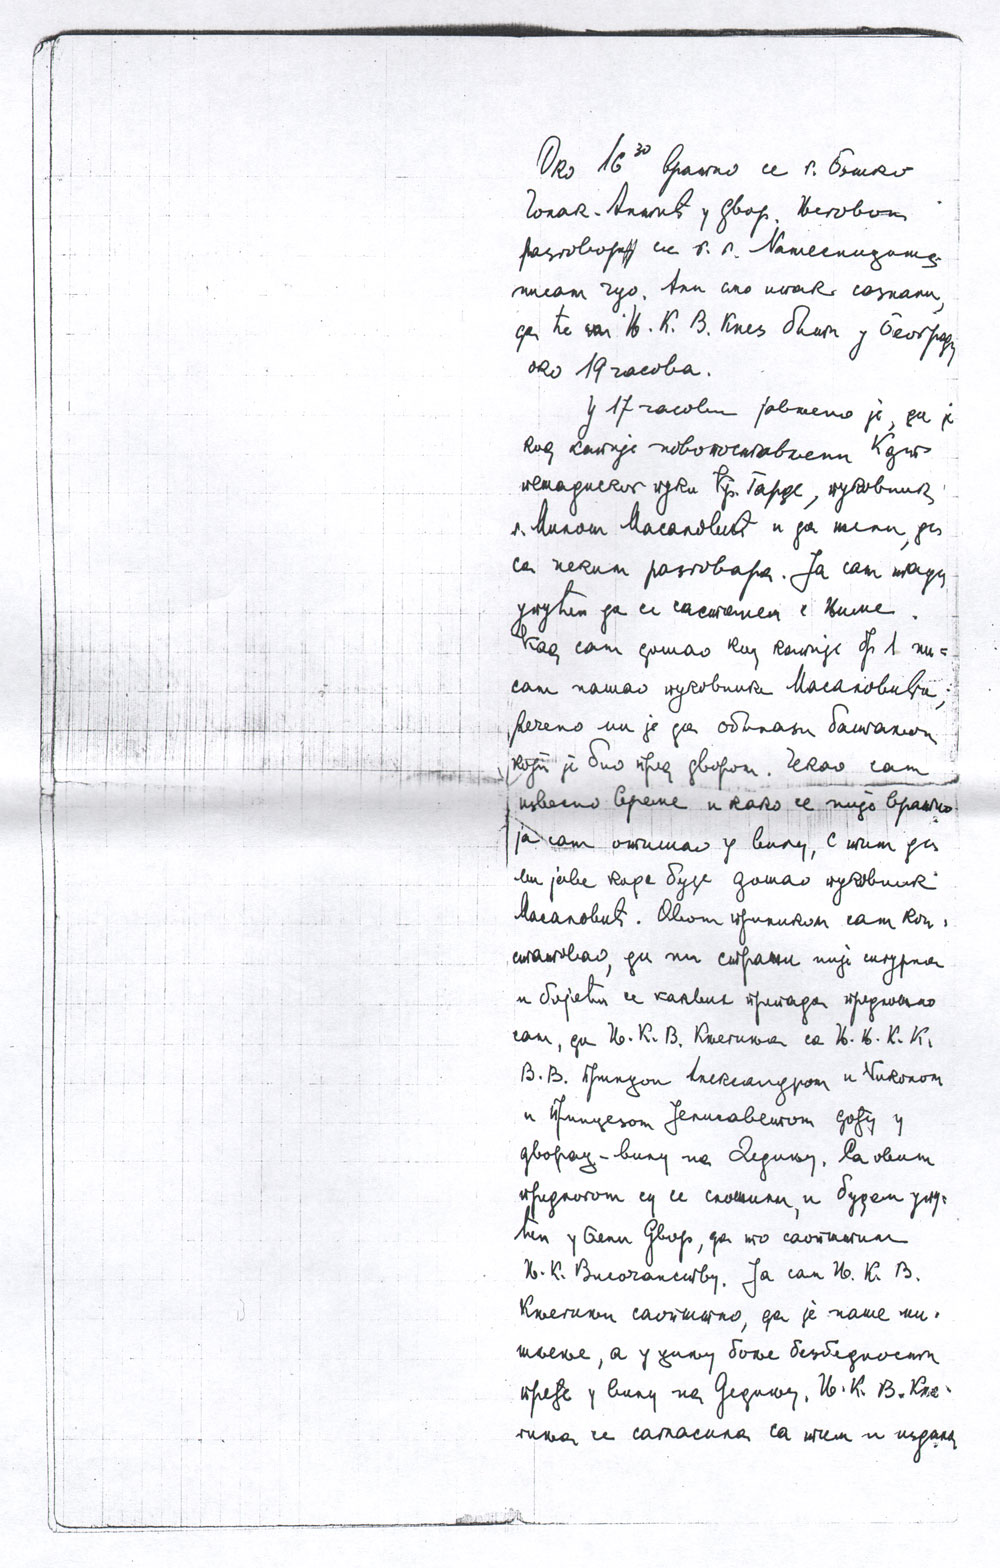 Око 16³⁰ вратио се г. Бошко
Чолак-Антић у двор. Његовом
разговору са г. г. Намесницима
нисам чуо. Али смо ипак сазнали,
да ће Њ. К. В. Кнез бити у Београду
око 19 часова.
У 17 часова јављено је, да је
код капије новопостављени К-дант
пешадиског пука Кр. Гарде, пуковник
г. Милош Масаловић и да жели, да
са неким разговара. Ја сам тада
упућен да се састанем с њиме.
Кад сам дошао код капије бр 1 ни-
сам нашао пуковника Масаловића,
речено ми је да обилази батаљон
који је био пред двором. Чекао сам
извесно време и како се није вратио
ја сам отишао у вилу, с тим да
ми јаве када буде дошао пуковник
Масаловић. Овом приликом сам кон-
статовао, да ни стража није сигурна
и бојећи се каквих препада предложио
сам, да Њ. К. В. Кнегиња са Њ. Њ. К. К.
В. В. Принцом Александром и Николом
и Принцезом Јелисаветом дођу у
дворац-вилу на Дедињу. Са овим
предлогом су се сложили, и будем упу-
ћен у Бели Двор, да то саопштим
Њ. К. Височанству. Ја сам Њ. К. В.
Кнегињи саопштио, да је наше ми-
шљење, а у циљу боље безбедности
пређе у вилу на Дедињу. Њ. К. В. Кне-
гиња се сагласила са тим и издала